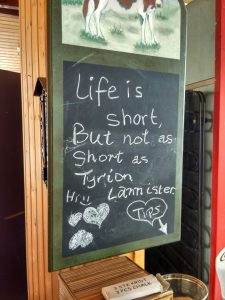 Life is
short,
But not as
Short as
Tyrion
Lannister
Hi!!
TIPS